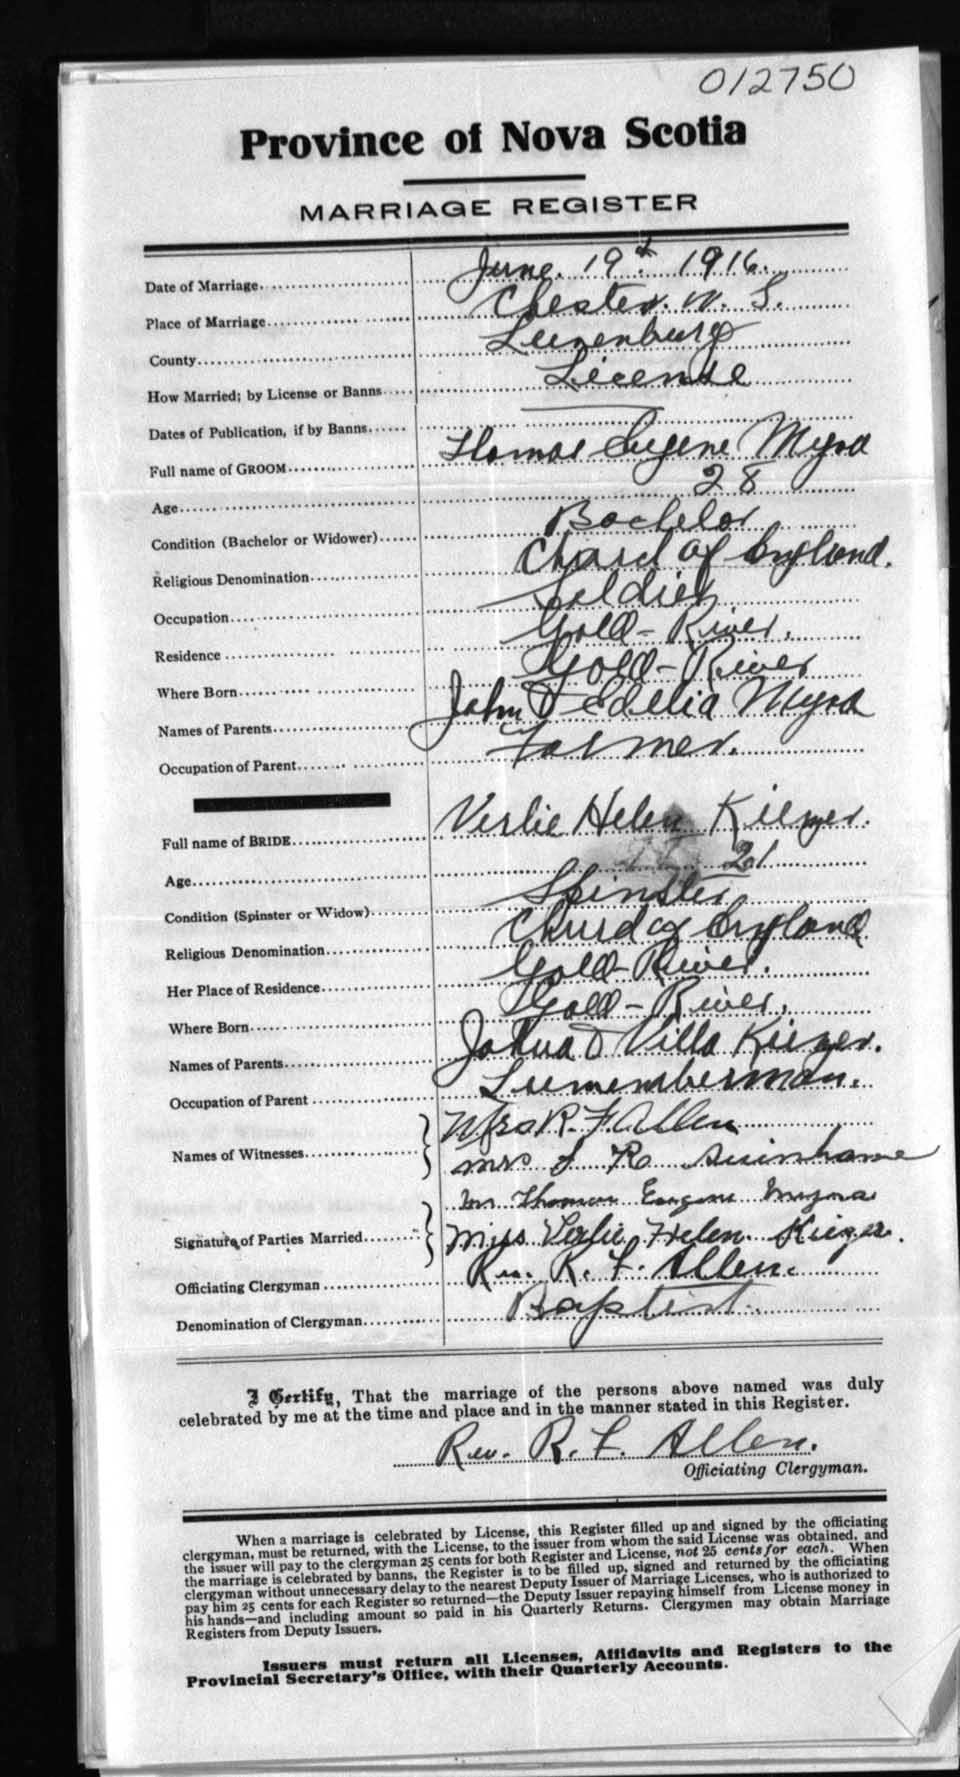 012750
Province of Nova Scotia
MARRIAGE REGISTER
Date of Marriage June. 19th. 1916.
Place of Marriage Chester. N. S.
County Lunenburg
How Married; by License or Banns License
Dates of Publication, if by Banns
Full name of GROOM Thomas Eugene Myra
Age 28
Condition (Bachelor or Widower) Bachelor
Religious Denomination Church of England.
Occupation Soldier
Residence Gold-River.
Where Born Gold-River
Names of Parents John & Edelia Myra
Occupation of Parent Farmer.
Full name of BRIDE Verlie Helen
Age 21
Condition (Spinster or Widow) Spinster
Religious Denomination Church of England
Her Place of Residence Gold-River.
Where Born Gold-River.
Names of Parents Joshua & Villa
Occupation of Parent Lumemberman.
Names of Witnesses Mrs R. F. Allen
Mrs
Signature of Parties Married Mr Thomas Eugene Myra
Miss Verlie Helen.
Officiating Clergyman Rev. R. F. Allen.
Denomination of Clergyman Baptist.
I Certify, That the marriage of the persons above named was duly
celebrated by me at the time and place and in the manner stated in this Register.
Rev. R. F. Allen.
Officiating Clergyman.
When a marriage is celebrated by License, this Register filled up and signed by the officiating
clergyman, must be returned, with the License, to the issuer from whom the said License was obtained, and
the issuer will pay to the clergyman 25 cents for both Register and License, not 25 cents for each. When
the marriage is celebrated by banns, the Register is to be filled up, signed and returned by the officiating
clergyman without unnecessary delay to the nearest Deputy Issuer of Marriage Licenses, who is authorized to
pay him 25 cents for each Register so returned—the Deputy Issuer repaying himself from License money in
his hands—and including amount so paid in his Quarterly Returns. Clergymen may obtain Marriage
Registers from Deputy Issuers.
Issuers must return all Licenses, Affidavits and Registers to the
Provincial Secretary's Office, with their Quarterly Accounts.